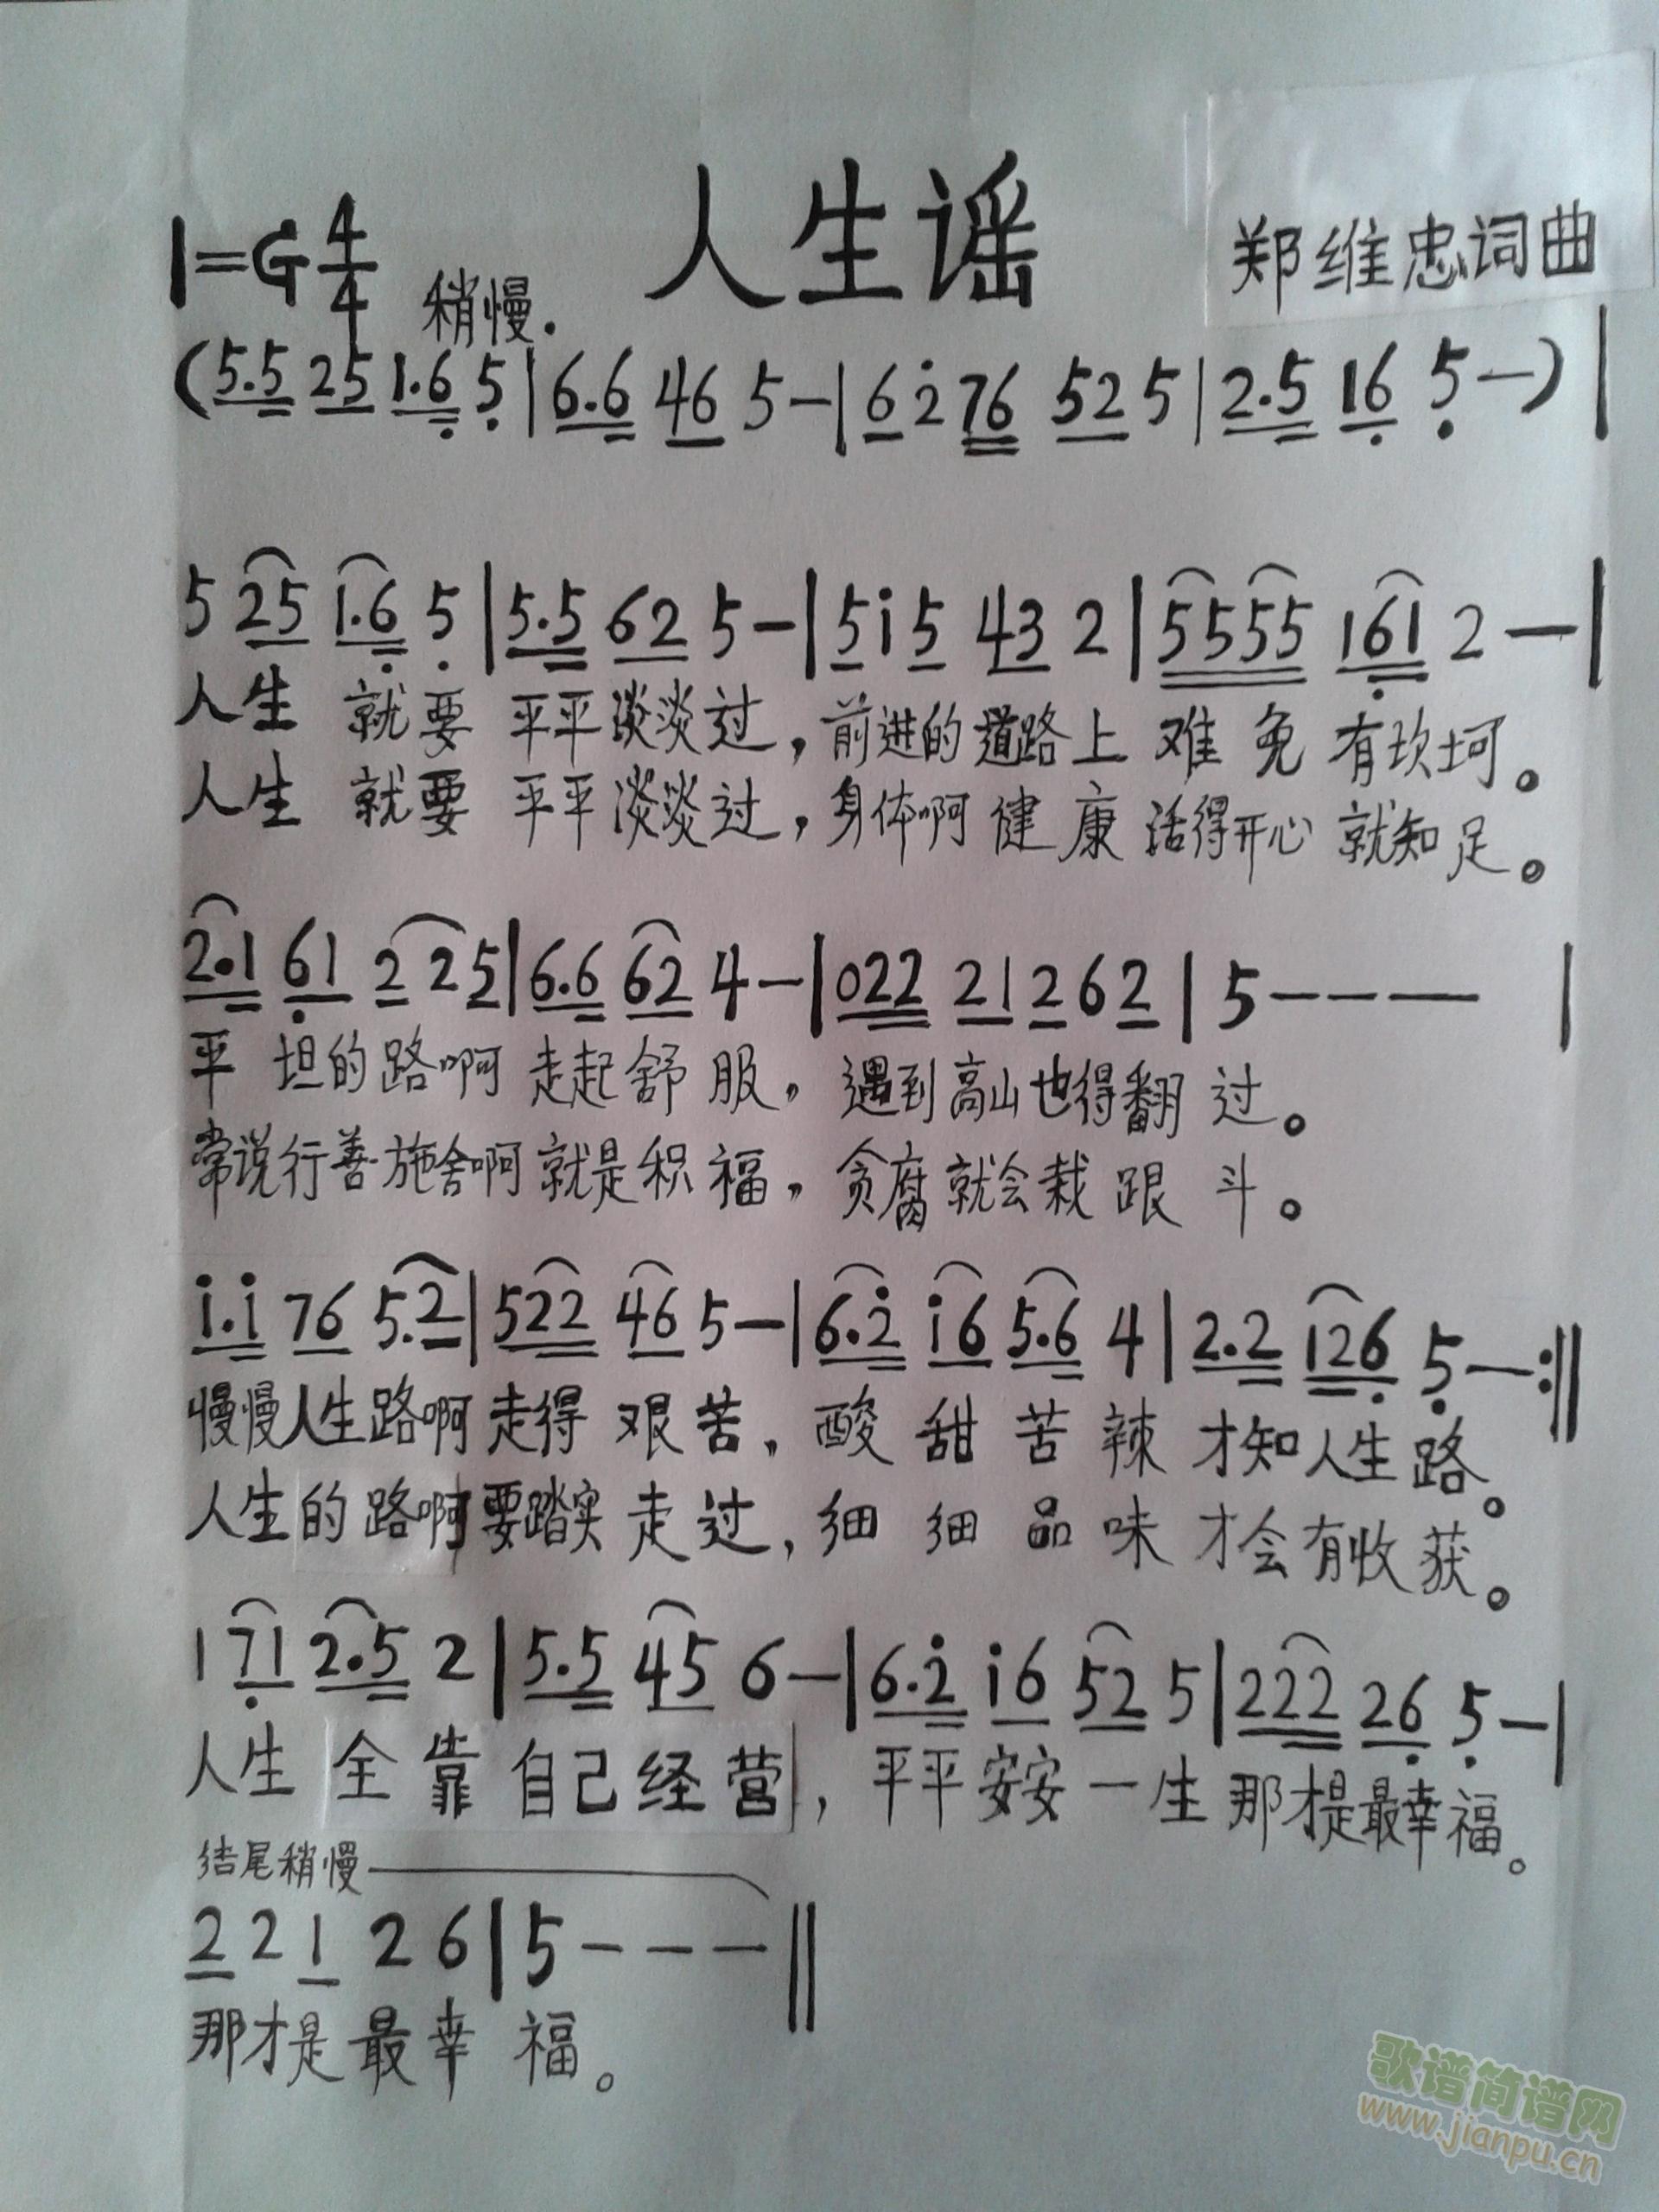 人生谣
1=G 4/4 稍慢.
郑维忠词曲
(5.5 25 1.6 5|6.6 46 5—|6 2 76 52 5|2.5 16 5—)|
5 25 1.6 5|5.5 62 5—|5 i 5 43 2|5555 161 2—|
人生 就要 平平淡淡过,前进的道路上 难免有坎坷。
人生 就要 平平淡淡过,身体啊健康 活得开心就知足。
2.1 61 2 2 5|6.6 62 4—|022 21 2 6 2|5———|
平坦的路啊走起舒服,遇到高山也得翻过。
常说行善施舍啊就是积福,贪腐就会栽跟斗。
i.i 76 5.2|522 46 5—|6.2 i6 5.6 4|2.2 126 5—:‖
慢慢人生路啊走得艰苦,酸甜苦辣才知人生路。
人生的路啊要踏实走过,细细品味才会有收获。
1 71 2.5 2|5.5 45 6—|6.2 i6 52 5|222 26 5—|
人生全靠自己经营,平平安安一生那才是最幸福。
结尾稍慢
2 2 1 2 6|5———‖
那才是最幸福。
歌谱简谱网
www.jianpu.cn